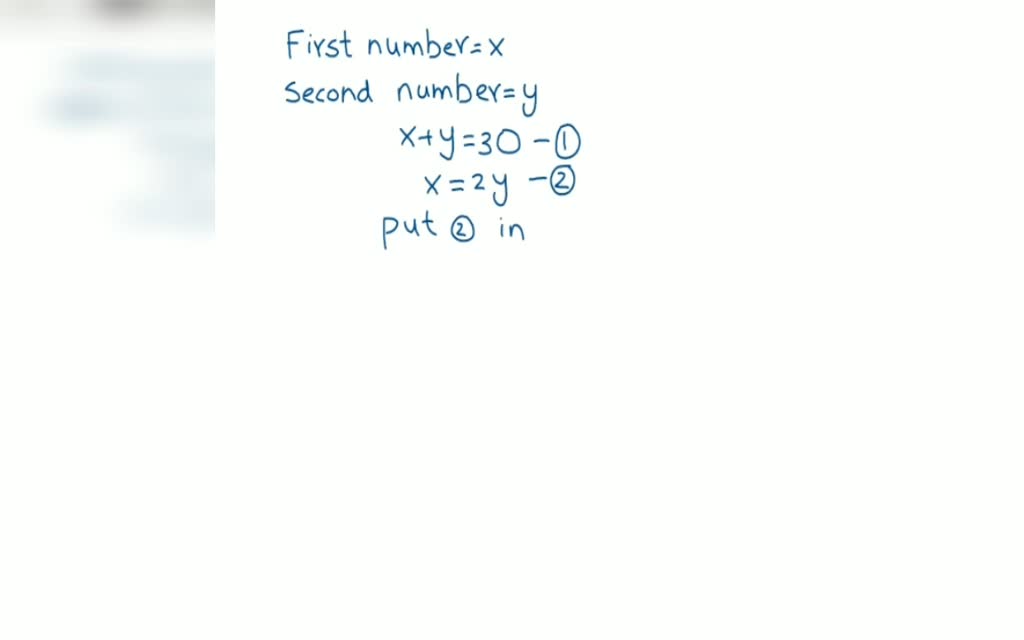 First number=x
Second number=y
x+y=30 -①
x=2y -②
put ② in